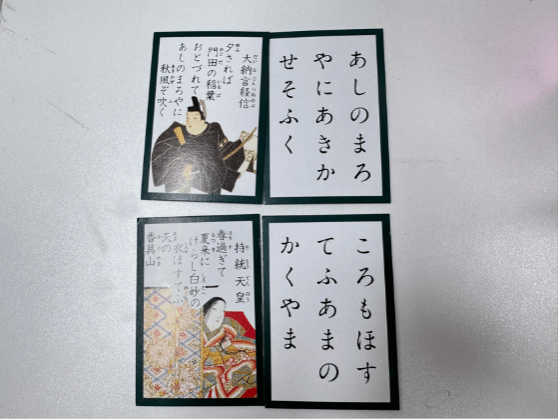 大納言経信
夕されば
門田の稲葉
おとづれて
あしのまろやに
秋風ぞ吹く
あしのまろ
やにあきか
せそふく
持統天皇
春過ぎて
夏来に
けらし白妙の
衣ほすてふ
天の
香具山
ころもほす
てふあまの
かくやま